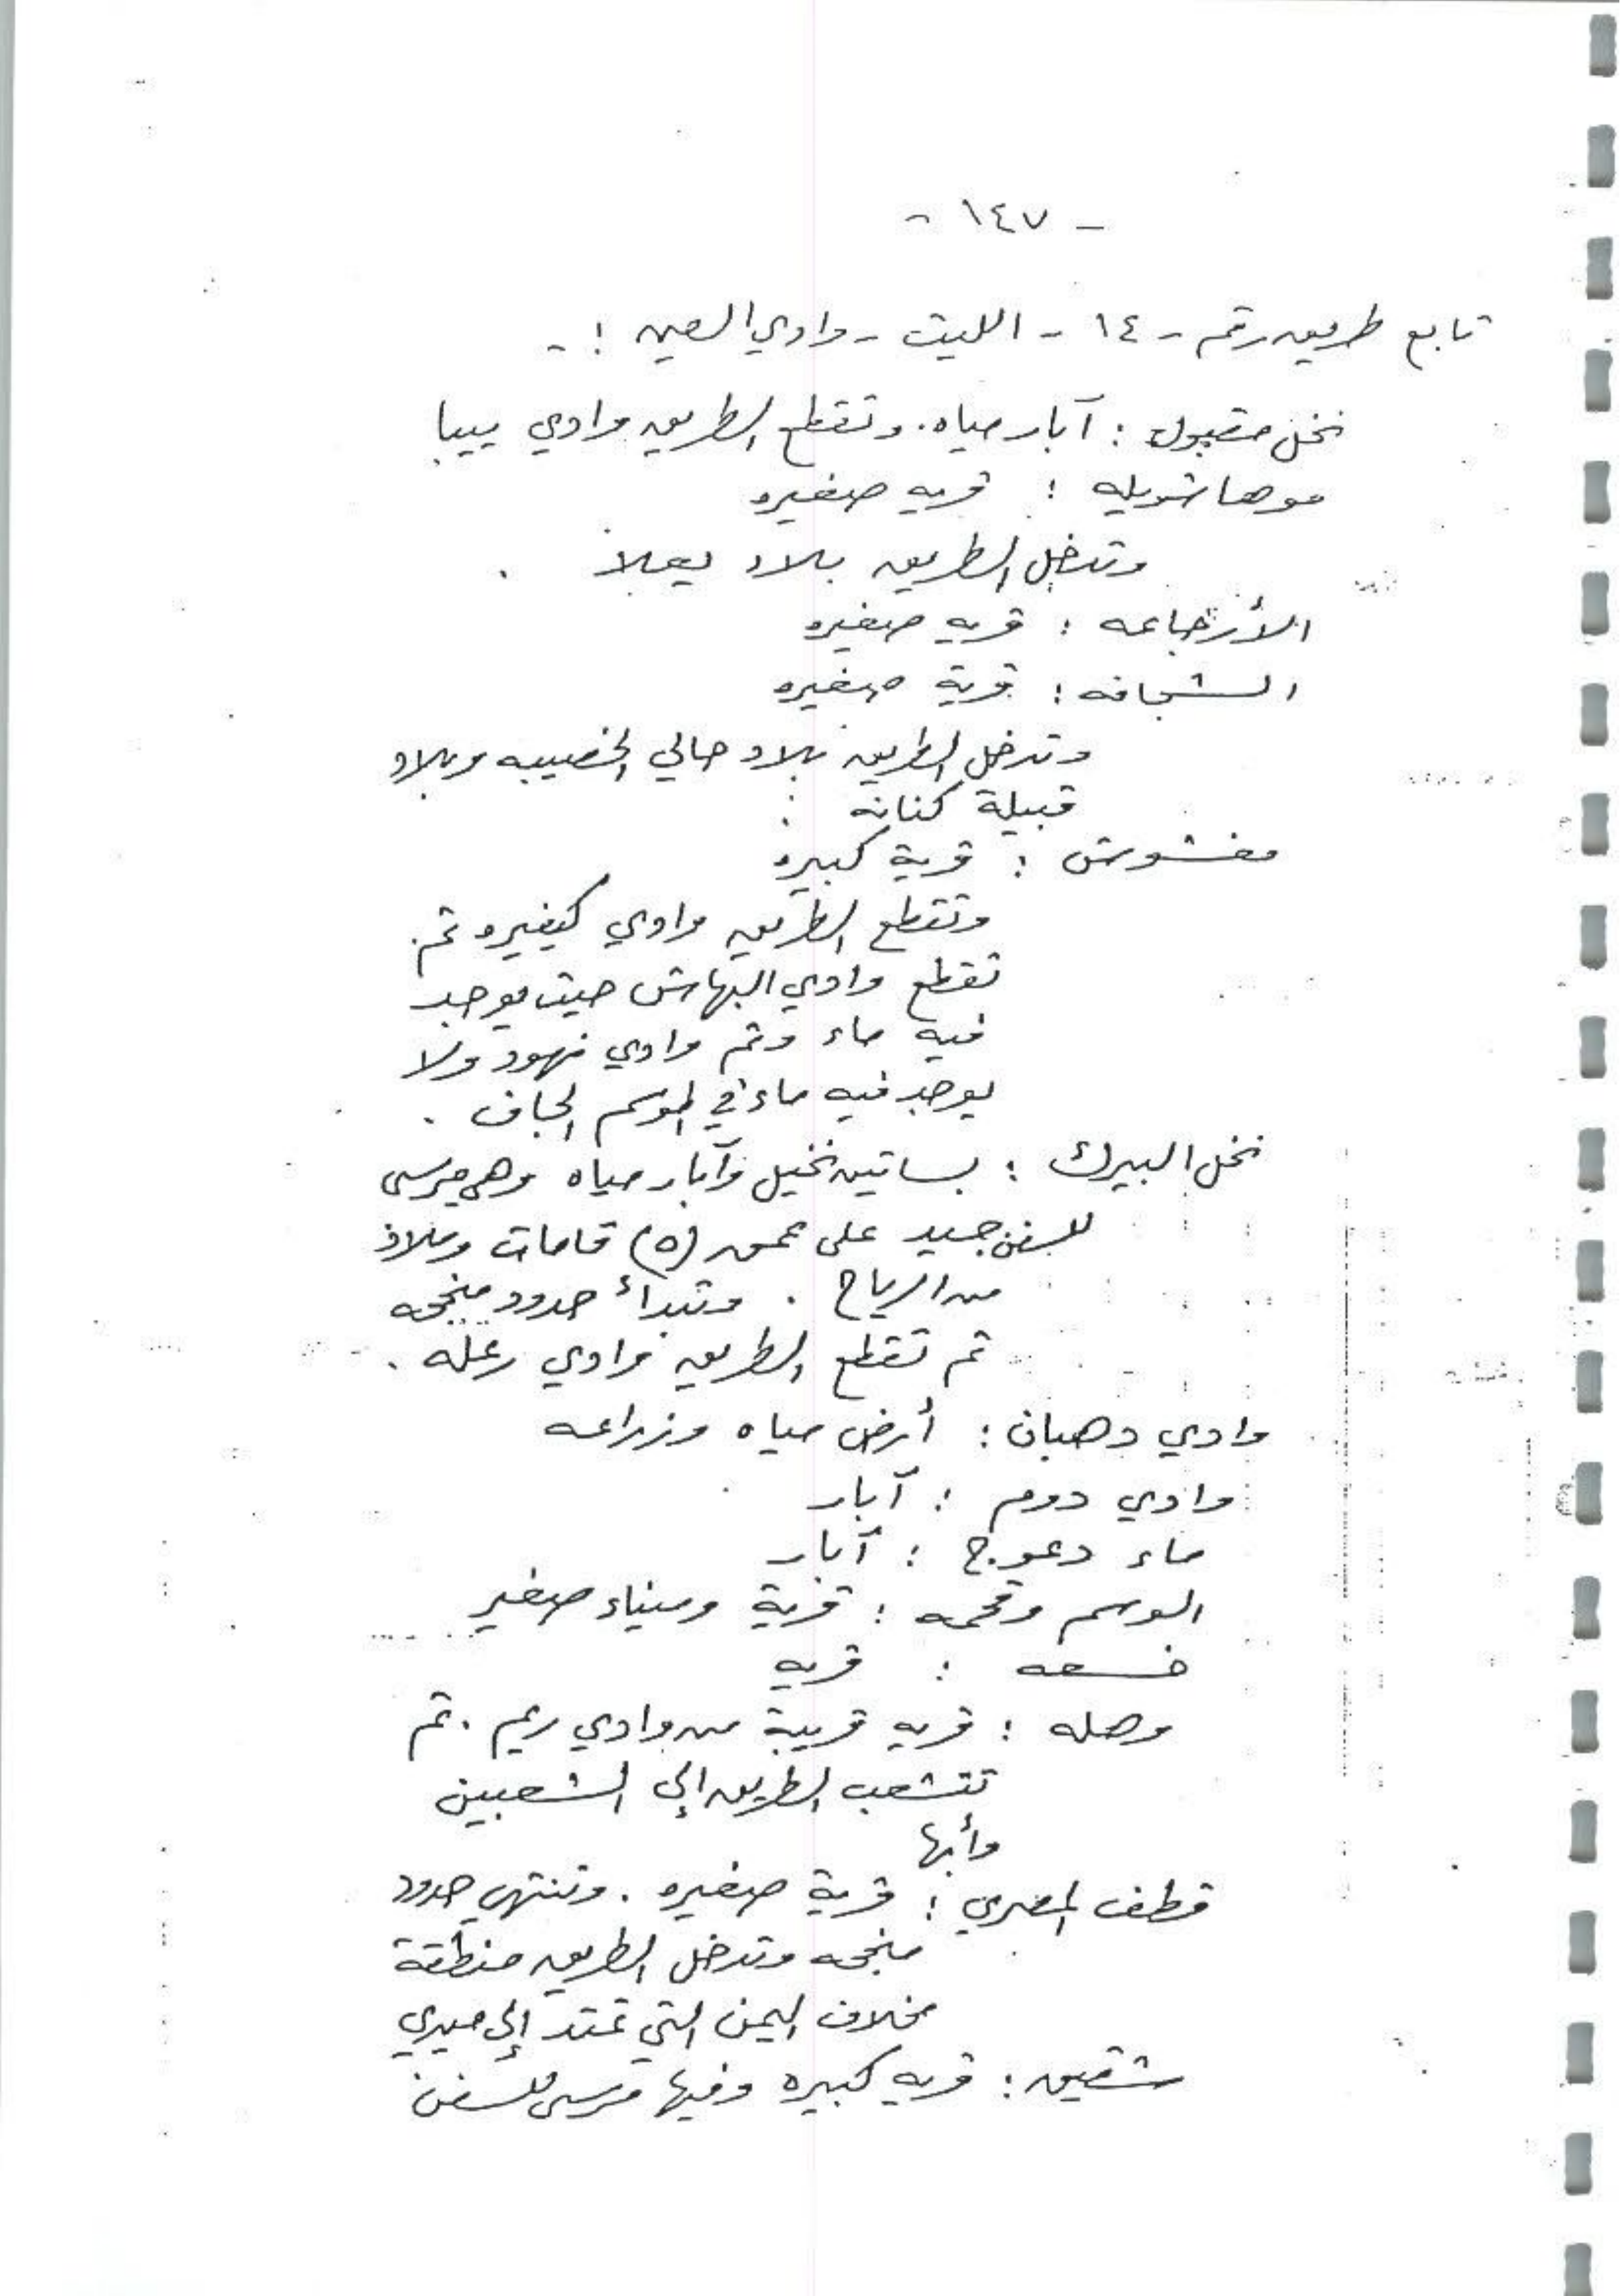 - ١٤٧ -
تابع طريق رقم - ١٤ - الليث - وادي العين : -
نخل مقبول : آبار مياه . وتقطع الطريق وادي يبيا
موها شويله : قريه صغيره
وتدخل الطريق بلاد يعلا .
الأرضاعه : قريه صغيره
الشجافه : قرية صغيره
وتدخل الطريق بلاد حالي الخصيبه وبلاد
قبيلة كنانه :
مغشوش : قرية كبيره
وتقطع الطريق وادي كيفيره ثم .
تقطع وادي البهاش حيث يوجد
فيه ماء وثم وادي نهود ولا
يوجد فيه ماء في الموسم الجاف .
نخل البيرك : بساتين نخيل وآبار مياه وهي مرسى
للسفن جيد على عمق (٥) قامات وملاذ
من الرياح . وتبدأ حدود منجحه
ثم تقطع الطريق وادي رعله .
وادي دهبان : أرض مياه وزراعه
وادي دوم : آبار
ماء دعوج : آبار
الوسم وقحمه : قرية وميناء صغير
خسعه : قريه
وصله : قريه قريبة من وادي ريم . ثم
تتشعب الطريق إلى الشعبين
وأبها
قطف المصري : قرية صغيره . وتنتهي حدود
منجحه وتدخل الطريق منطقة
مخلاف اليمن التي تمتد إلى ميدي
شقيق : قريه كبيره وفيها مرسى للسفن